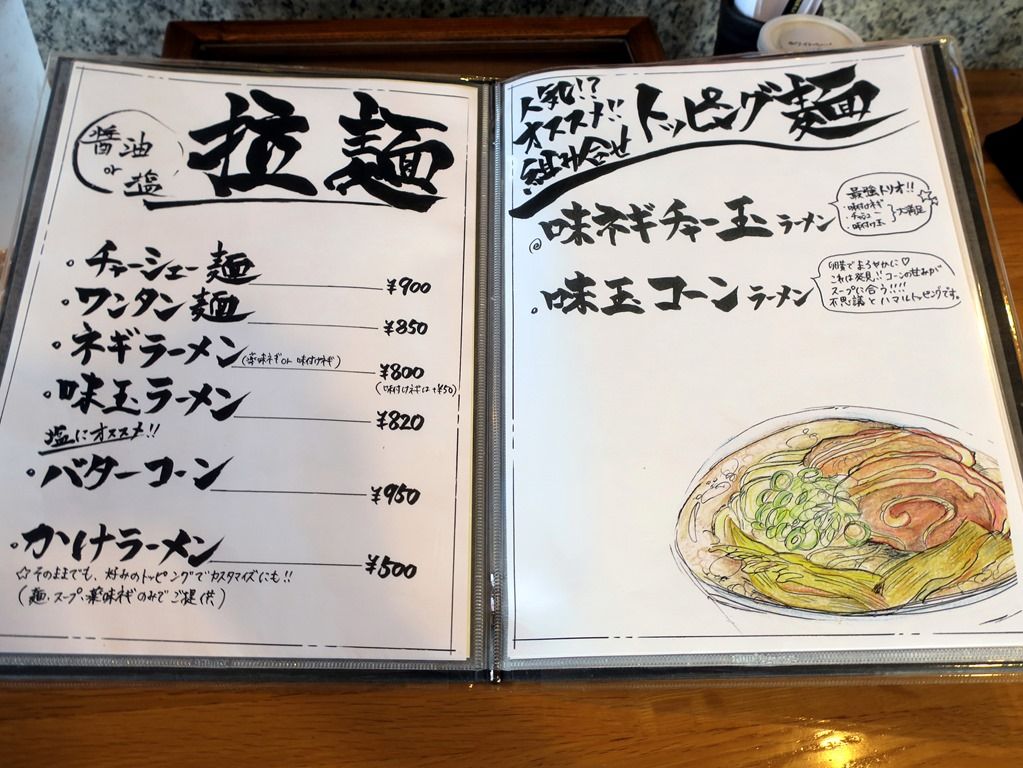 醤油
or
塩
拉麺
・チャーシュー麺 ¥900
・ワンタン麺 ¥850
・ネギラーメン(薬味ネギor味付けネギ) ¥800
(味付けネギは+¥50)
・味玉ラーメン ¥820
塩にオススメ!!
・バターコーン ¥950
・かけラーメン ¥500
☆そのままでも、好みのトッピングでカスタマイズにも!!
(麺・スープ・薬味ネギのみでご提供)
人気!?
オススメ!!
組み合せ
トッピング麺
味ネギチャー玉ラーメン
最強トリオ!!
・味付けネギ
・チャーシュー
・味付け玉
大満足
・味玉コーンラーメン
卵黄でまろやかに♡
これは発見!!コーンの甘みが
スープに合う!!!!
不思議とハマルトッピングです。